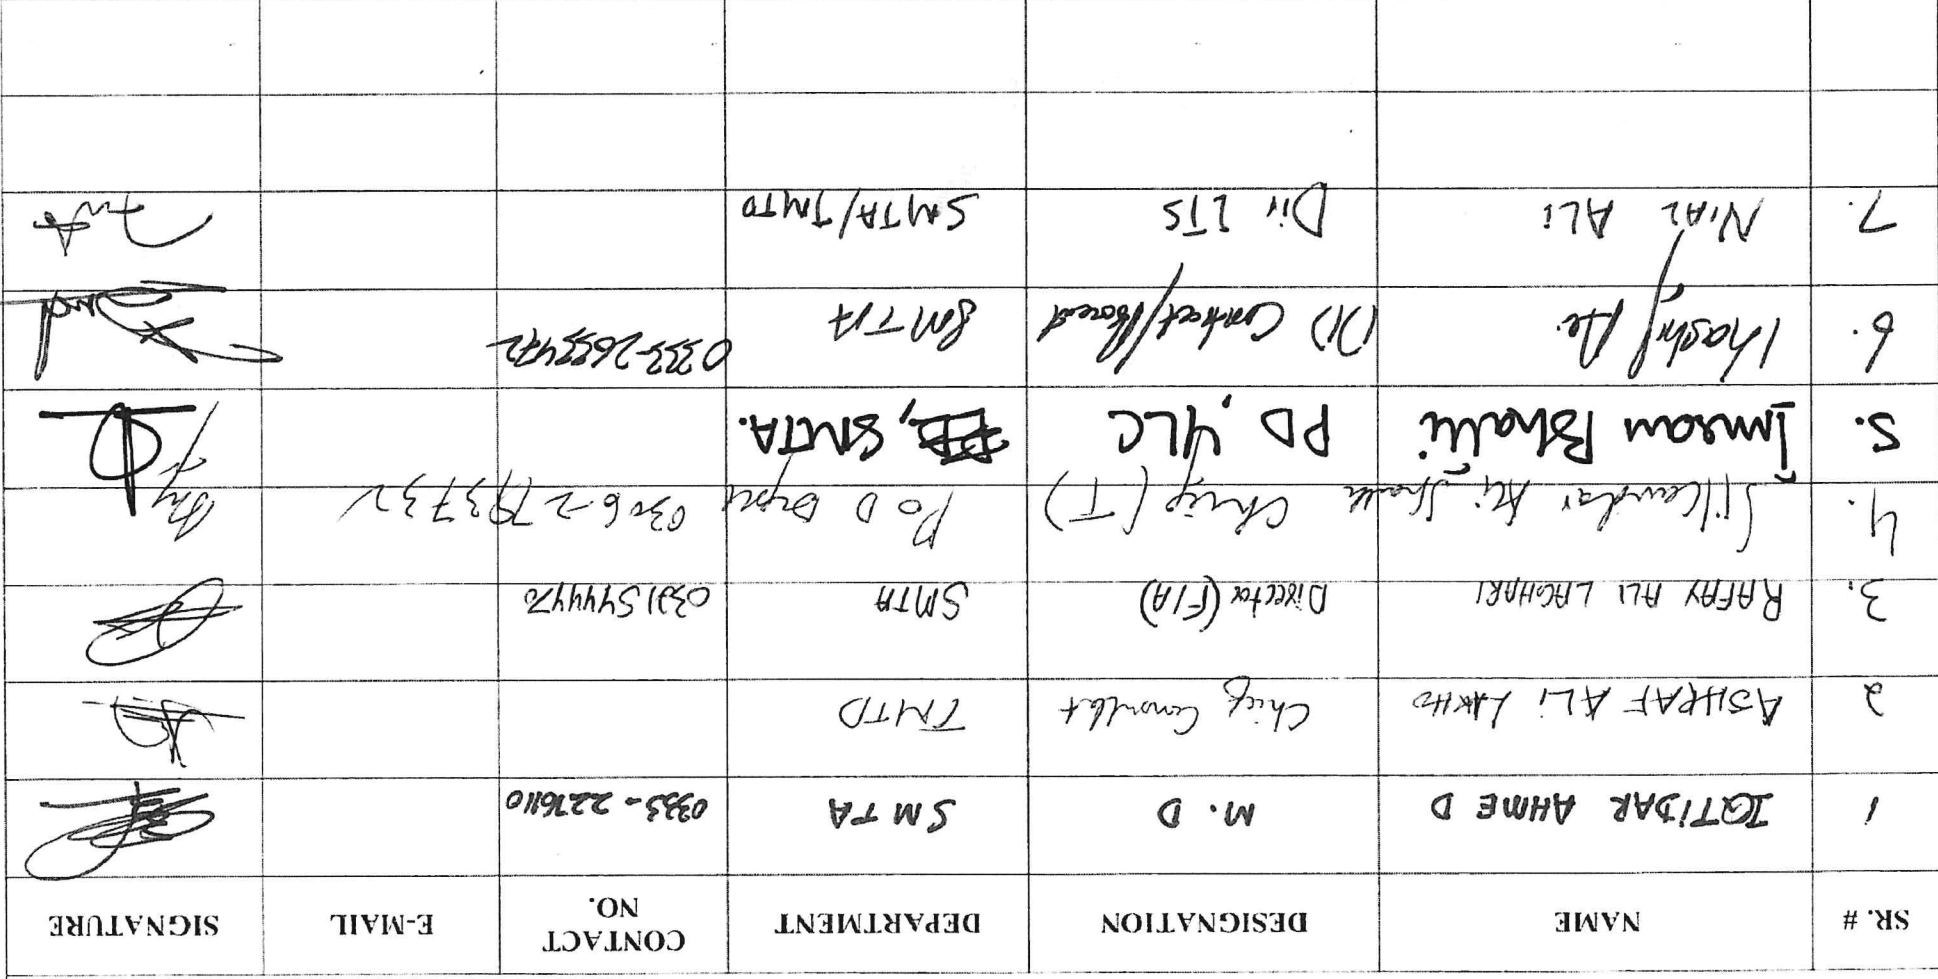 SR. # NAME DESIGNATION DEPARTMENT CONTACT NO. E-MAIL SIGNATURE
1 IQTIDAR AHMED M.D SMTA 0333-2276110
2 ASHRAF ALI Chief Consultant TMTD
3. RAFAY ALI LAGHARI Director (F/A) SMTA 03315444470
4. Sikandar Ali Chief (T) P&D 0306-2793732
5. Imran Bhatti PD, YLC SMTA.
6. Kashif Ali DD Contract/ SMTA 0333-2655472
7. NIAZ ALI Dir ITS SMTA/TMTD